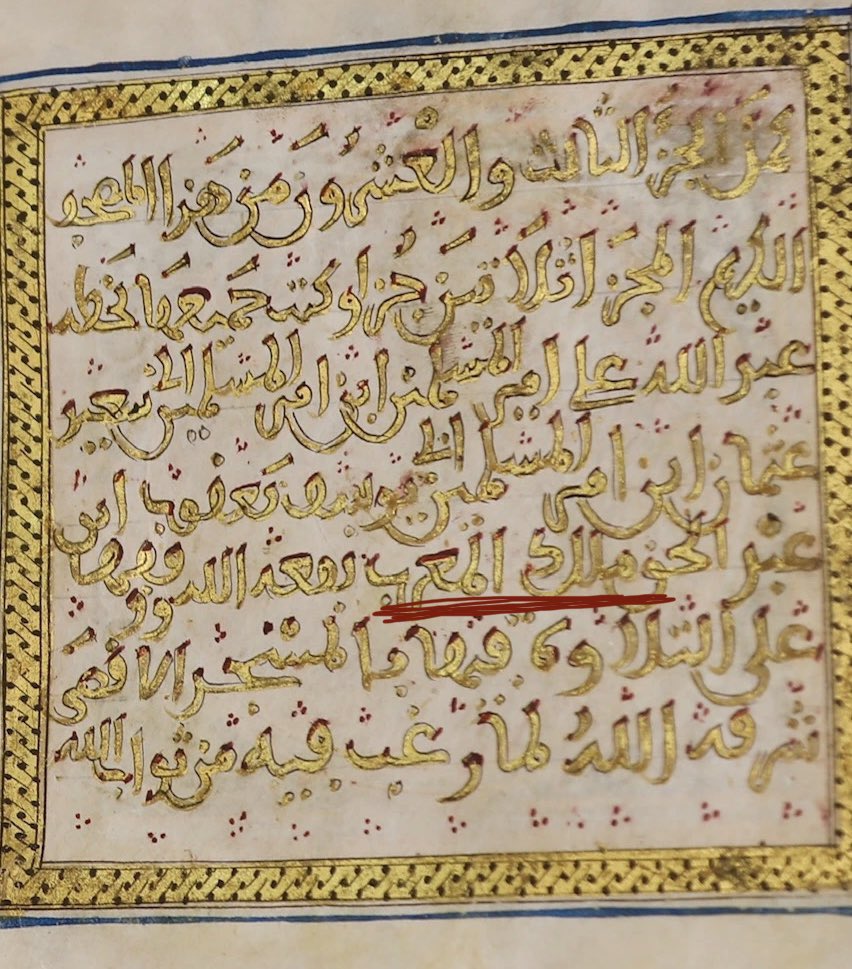 كمل الجزء الثالث والعشرون من هذا المصحف
الكريم المجزإ ثلاثين جزءا وكتب جميعها بخطه
عبد الله علي امير المسلمين ابن امير المسلمين ابي سعيد
عثمان ابن امير المسلمين ابي يوسف يعقوب ابن
عبد الحق ملك المغرب نفعه الله ووقفها
على التلاوة فيها بالمسجد الاقصى
شرفه الله لما رغب فيه من ثواب الله